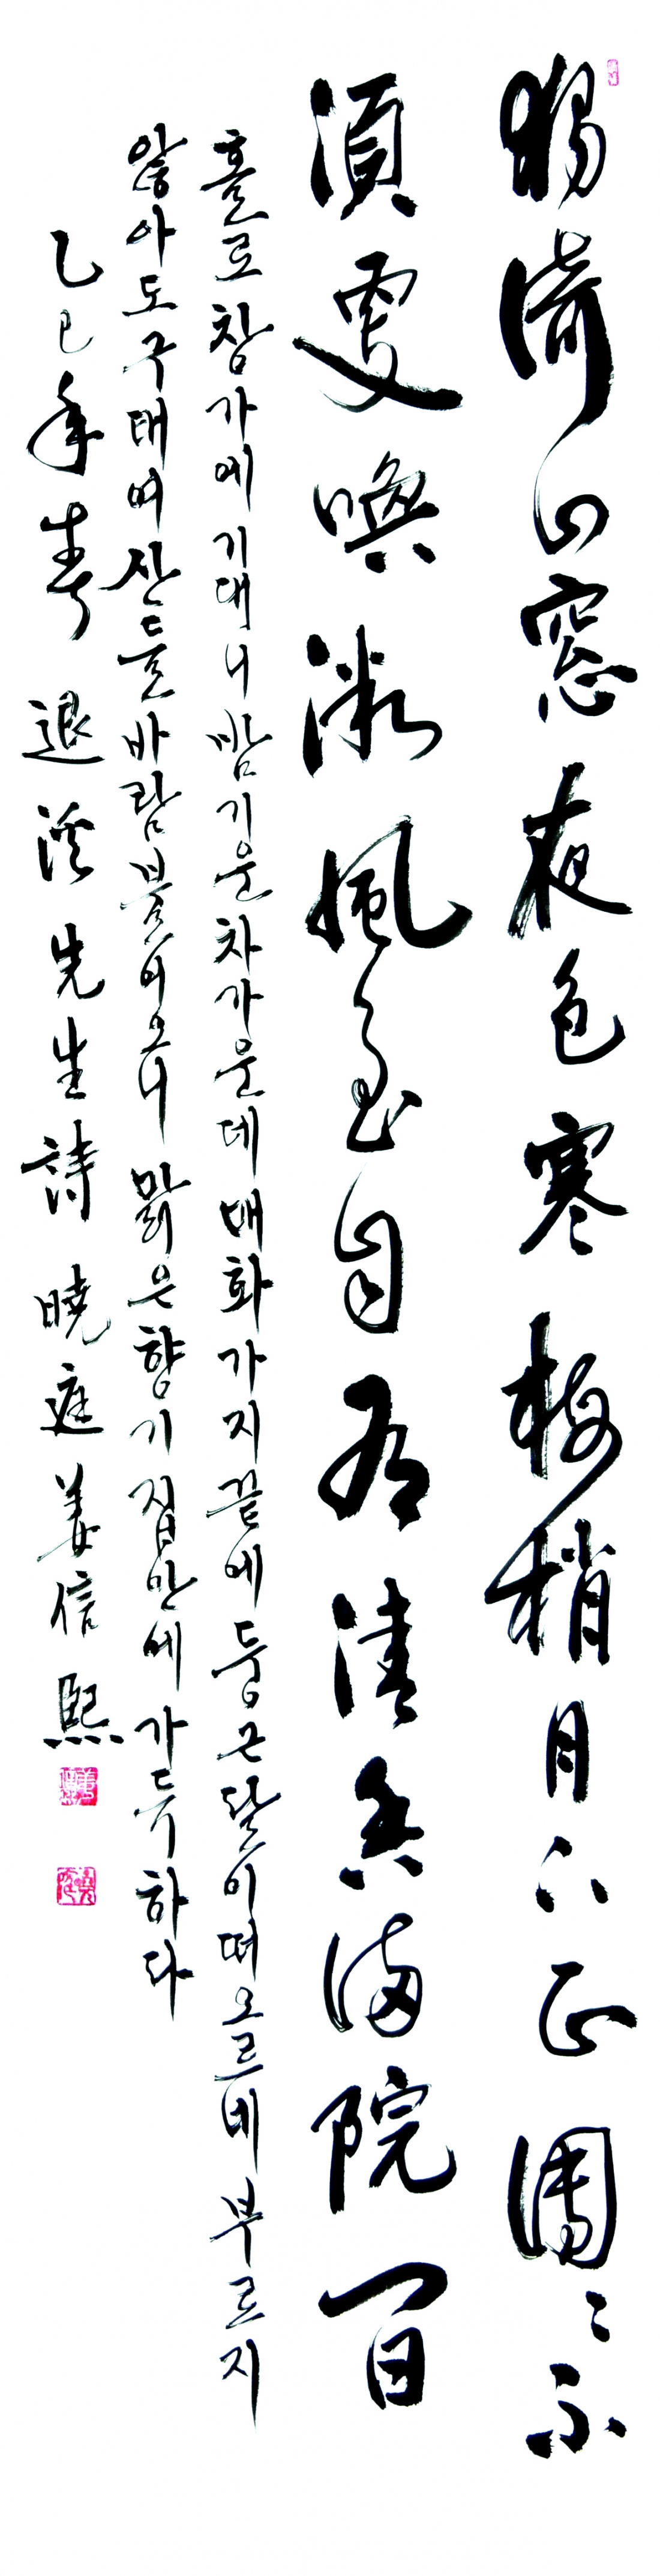 獨倚山窓夜色寒梅梢月上正團々不
須更喚微風至自有清香滿院間
홀로 창가에 기대니 밤기운 차가운데 매화 가지 끝에 둥근달이 떠오르네 부르지
않아도 구태여 산들바람 불어오니 맑은 향기 집안에 가득하다
乙巳年春 退溪先生詩 曉庭 姜信熙